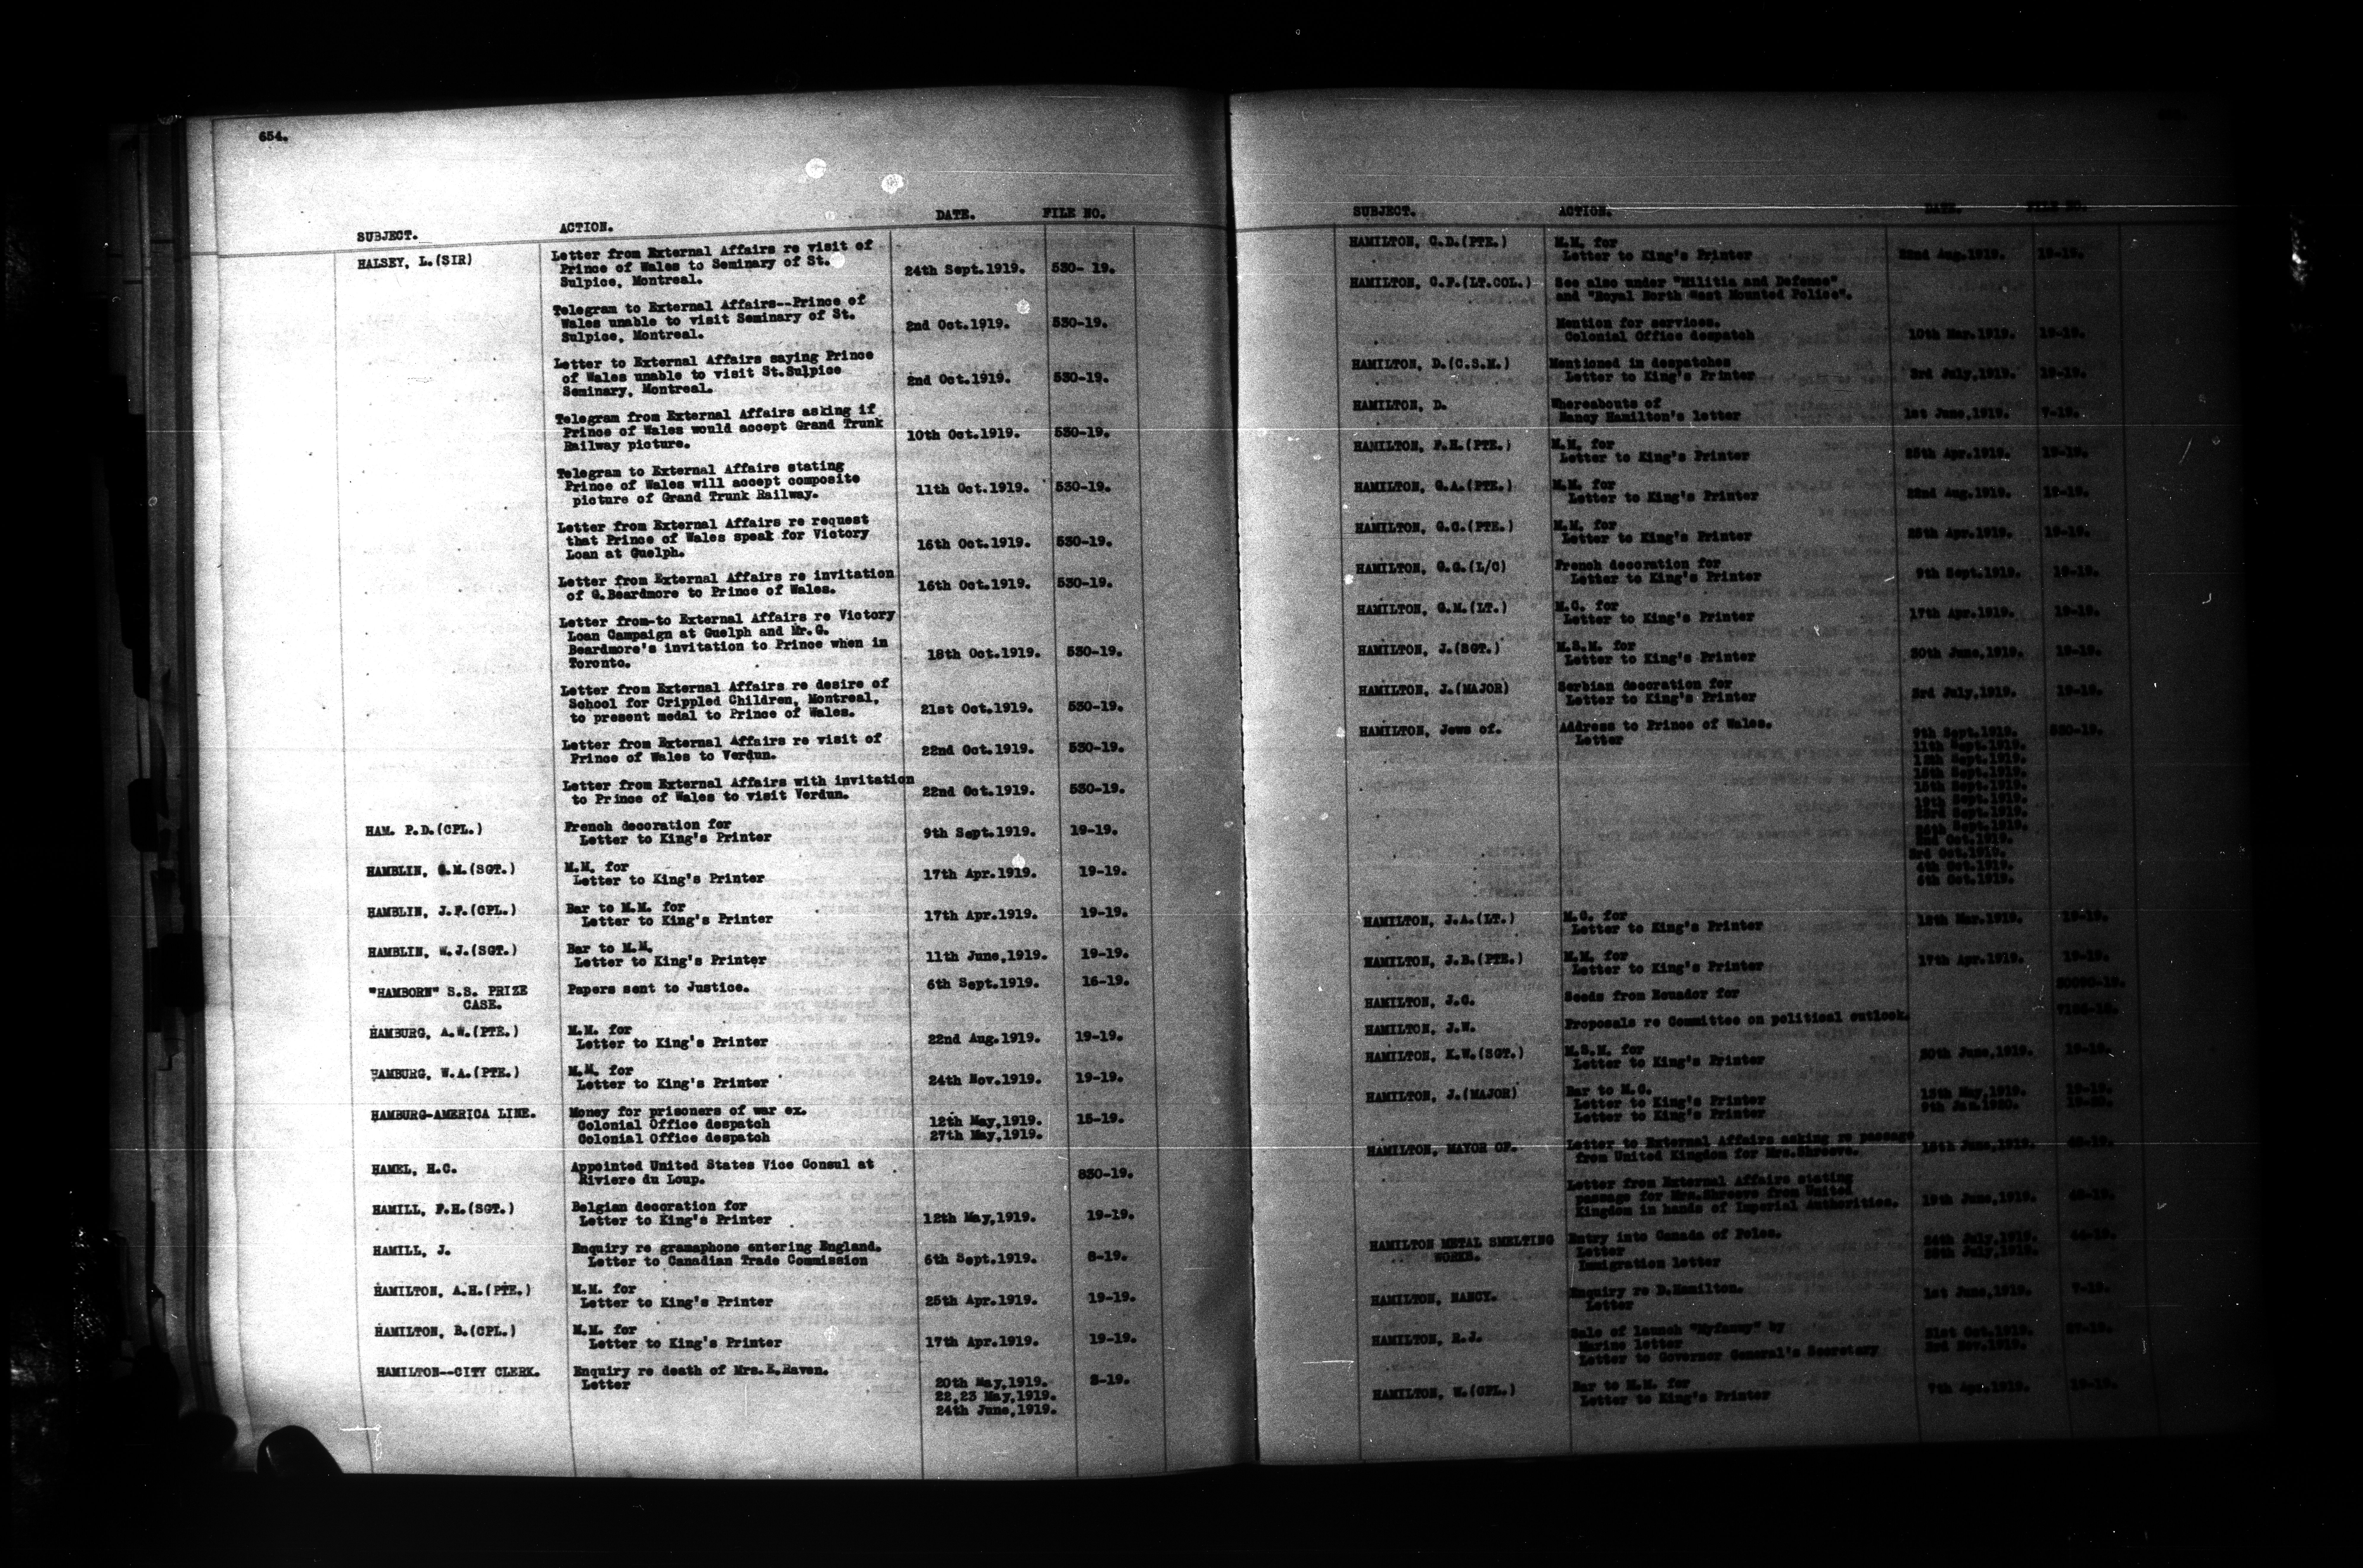 654.
SUBJECT. ACTION. DATE. FILE NO.
HALSEY, L.(SIR) Letter from External Affairs re visit of
Prince of Wales to Seminary of St. 24th Sept.1919. 530- 19.
Sulpice, Montreal.
Telegram to External Affairs--Prince of
Wales unable to visit Seminary of St. 2nd Oct.1919. 530-19.
Sulpice, Montreal.
Letter to External Affairs saying Prince
of Wales unable to visit St.Sulpice 2nd Oct.1919. 530-19.
Seminary, Montreal.
Telegram from External Affairs asking if
Prince of Wales would accept Grand Trunk 10th Oct.1919. 530-19.
Railway picture.
Telegram to External Affairs stating
Prince of Wales will accept composite 11th Oct.1919. 530-19.
picture of Grand Trunk Railway.
Letter from External Affairs re request
that Prince of Wales speak for Victory 16th Oct.1919. 530-19.
Loan at Guelph.
Letter from External Affairs re invitation
of G.Beardmore to Prince of Wales. 16th Oct.1919. 530-19.
Letter from-to External Affairs re Victory
Loan Campaign at Guelph and Mr.G.
Beardmore's invitation to Prince when in 18th Oct.1919. 530-19.
Toronto.
Letter from External Affairs re desire of
School for Crippled Children, Montreal, 21st Oct.1919. 530-19.
to present medal to Prince of Wales.
Letter from External Affairs re visit of
Prince of Wales to Verdun. 22nd Oct.1919. 530-19.
Letter from External Affairs with invitation
to Prince of Wales to visit Verdun. 22nd Oct.1919. 530-19.
HAM. P.D.(CPL.) French decoration for
Letter to King's Printer 9th Sept.1919. 19-19.
HAMBLIN, G.M.(SGT.) M.M. for
Letter to King's Printer 17th Apr.1919. 19-19.
HAMBLIN, J.F.(CPL.) Bar to M.M. for
Letter to King's Printer 17th Apr.1919. 19-19.
HAMBLIN, W.J.(SGT.) Bar to M.M.
Letter to King's Printer 11th June,1919. 19-19.
"HAMBORN" S.S. PRIZE Papers sent to Justice. 6th Sept.1919. 16-19.
CASE.
HAMBURG, A.W.(PTE.) M.M. for
Letter to King's Printer 22nd Aug.1919. 19-19.
HAMBURG, W.A.(PTE.) M.M. for
Letter to King's Printer 24th Nov.1919. 19-19.
HAMBURG-AMERICA LINE. Money for prisoners of war ex.
Colonial Office despatch 12th May,1919. 15-19.
Colonial Office despatch 27th May,1919.
HAMEL, H.C. Appointed United States Vice Consul at
Riviere du Loup. 830-19.
HAMILL, F.H.(SGT.) Belgian decoration for
Letter to King's Printer 12th May,1919. 19-19.
HAMILL, J. Enquiry re gramaphone entering England.
Letter to Canadian Trade Commission 6th Sept.1919. 8-19.
HAMILTON, A.H.(PTE.) M.M. for
Letter to King's Printer 25th Apr.1919. 19-19.
HAMILTON, B.(CPL.) M.M. for
Letter to King's Printer 17th Apr.1919. 19-19.
HAMILTON--CITY CLERK. Enquiry re death of Mrs.E.Raven.
Letter 20th May,1919. 8-19.
22,23 May,1919.
24th June,1919.
SUBJECT. ACTION. DATE. FILE NO.
HAMILTON, C.D.(PTE.) M.M. for
Letter to King's Printer 22nd Aug.1919. 19-19.
HAMILTON, C.F.(LT.COL.) See also under "Militia and Defence"
and "Royal North West Mounted Police".
Mention for services.
Colonial Office despatch 10th Mar.1919. 19-19.
HAMILTON, D.(C.S.M.) Mentioned in despatches
Letter to King's Printer 3rd July,1919. 19-19.
HAMILTON, D. Whereabouts of
Nancy Hamilton's letter 1st June,1919. 7-19.
HAMILTON, F.H.(PTE.) M.M. for
Letter to King's Printer 25th Apr.1919. 19-19.
HAMILTON, G.A.(PTE.) M.M. for
Letter to King's Printer 22nd Aug.1919. 19-19.
HAMILTON, G.C.(PTE.) M.M. for
Letter to King's Printer 25th Apr.1919. 19-19.
HAMILTON, G.G.(L/C) French decoration for
Letter to King's Printer 9th Sept.1919. 19-19.
HAMILTON, G.M.(LT.) M.C. for
Letter to King's Printer 17th Apr.1919. 19-19.
HAMILTON, J.(SGT.) M.S.M. for
Letter to King's Printer 30th June,1919. 19-19.
HAMILTON, J.(MAJOR) Serbian decoration for
Letter to King's Printer 3rd July,1919. 19-19.
HAMILTON, Jews of. Address to Prince of Wales.
Letter 9th Sept.1919. 530-19.
11th Sept.1919.
19th Sept.1919.
23rd Sept.1919.
2nd Oct.1919.
3rd Oct.1919.
4th Oct.1919.
6th Oct.1919.
HAMILTON, J.A.(LT.) M.C. for
Letter to King's Printer Mar.1919. 19-19.
HAMILTON, J.B.(PTE.) M.M. for
Letter to King's Printer 17th Apr.1919. 19-19.
HAMILTON, J.G. Seeds from Ecuador for
HAMILTON, J.W. Proposals re Committee on political outlook.
HAMILTON, K.W.(SGT.) M.S.M. for
Letter to King's Printer 30th June,1919. 19-19.
HAMILTON, J.(MAJOR) Bar to M.C.
Letter to King's Printer May,1919. 19-19.
Letter to King's Printer 9th Jan.1920.
HAMILTON, MAYOR OF. Letter to External Affairs asking re passage
from United Kingdom for Mrs.Shreeve. June,1919.
Letter from External Affairs stating
passage for Mrs.Shreeve from United
Kingdom in hands of Imperial Authorities. 19th June,1919.
HAMILTON METAL SMELTING Entry into Canada of Poles.
WORKS. Letter July,1919.
Immigration letter July,1919.
HAMILTON, NANCY. Enquiry re D.Hamilton.
Letter 1st June,1919. 7-19.
HAMILTON, R.J. Sale of launch "Myfanwy" by
Marine letter 31st Oct.1919.
Letter to Governor General's Secretary 3rd Nov.1919.
HAMILTON, W.(CPL.) Bar to M.M. for
Letter to King's Printer 7th Apr.1919. 19-19.